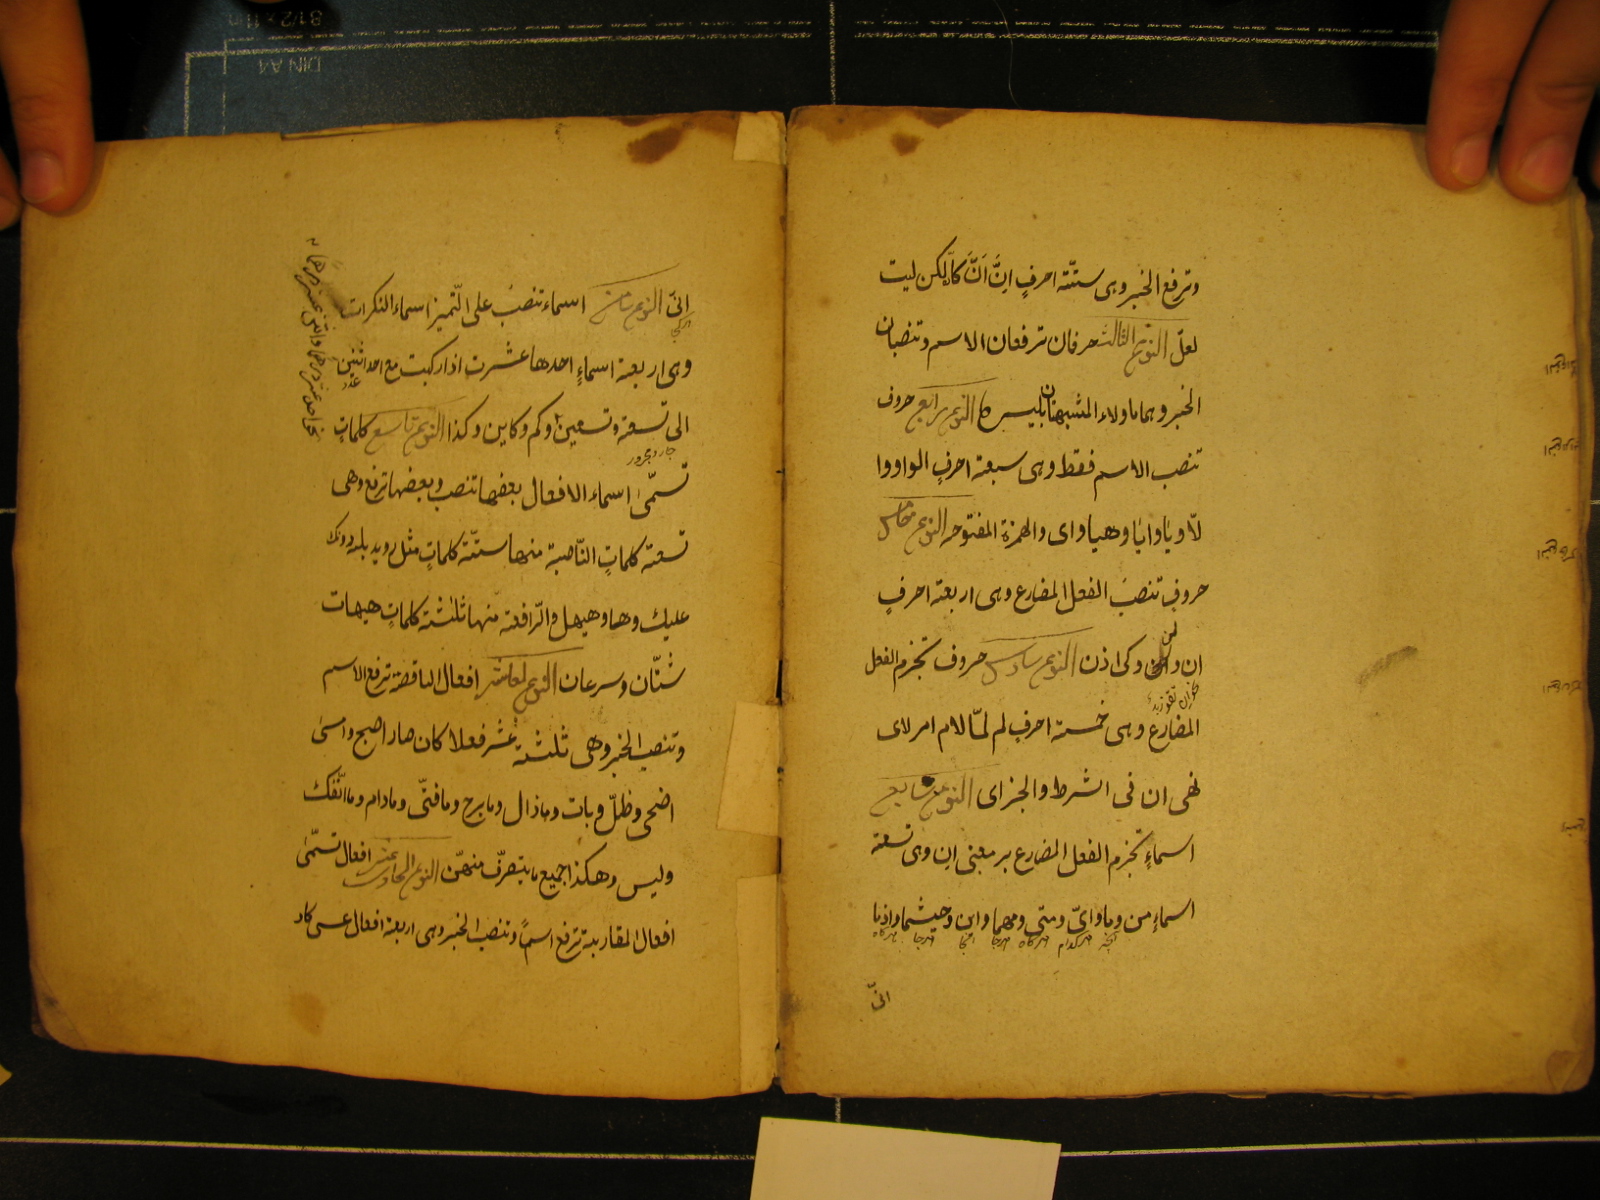 وترفع الخبر وهى ستّة احرفٍ اِنَّ اَنَّ كاَنَّ لكن ليت
لعلّ النوع الثالث حرفان ترفعان الاسم وتنصبان
الخبر وهما ما ولاء المشبهتان بليس النوع رابع حروف
تنصب الاسم فقط وهى سبعة احرفٍ الواو وا
لّا ويا وايا وهيا واى والهمزة المفتوحه النوع خامس
حروفٍ تنصبُ الفعل المضارع وهى اربعة احرفٍ
ان ولن وكى اذن النوع سادس حروف تجزم الفعل
المضارع وهى خمسة احرفٍ لم لمّا لام امر لاى
نهى ان فى الشرط والجزاى النوع سابع
اسماءٍ تجزم الفعل المضارع بر معنى ان وهى تسعة
اسماءٍ من وما واىّ ومتى ومهما واين وحيثما واذما
انّى
انّى النوع ثامن اسماء تنصبُ على التّميز اسماء النكرات
وهى اربعة اسماءٍ احدها عشرت اذا ركبت مع احد اثنين
الى تسعة وتسعين وكم وكاين وكذا النوع تاسع كلماتٍ
تسمّى اسماء الافعال بعضها تنصب وبعضها ترفع وهى
تسعة كلماتٍ النّاصبة منها ستّة كلماتٍ مثل رويد بله دونك
عليك وها وهيهل والرّافعة منها ثلثة كلماتٍ هيهات
شتّان وسرعان النوع العاشر افعال الناقصة ترفع الاسم
وتنصب الخبر وهى ثلثة عشر فعلا كان صار اصبح وامسى
اضحى وظلّ وبات وماذال ومابرح ومافتى ومادام وماانفك
وليس وهكذا جميع مايتصرّف منهّن النوع الحادى عشر افعال تسمّى
افعال المقاربة ترفع اسماً وتنصب الخبر وهى اربعة افعال عسى كاد